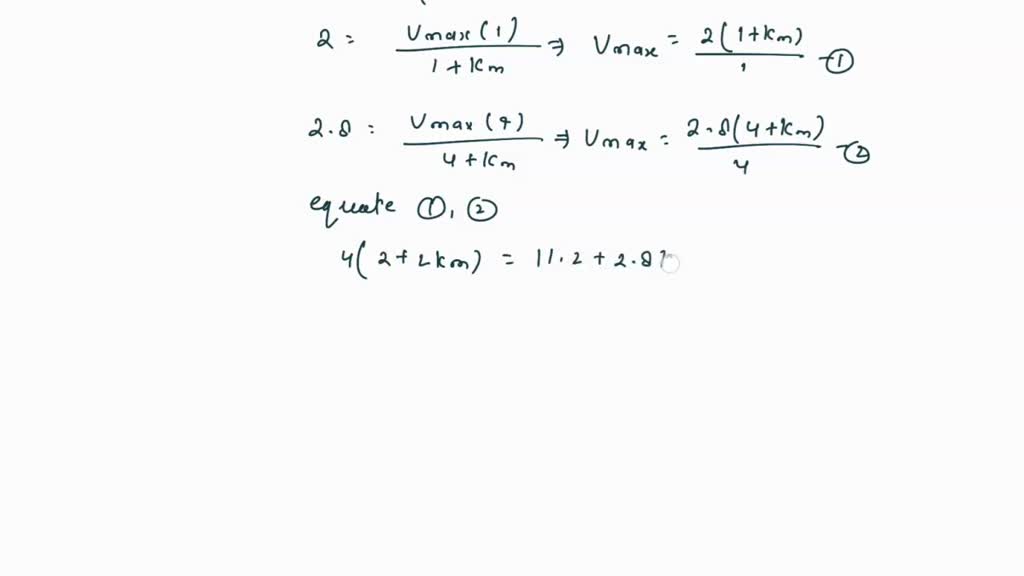 2 = Vmax (1) / 1 + Km ⇒ Vmax = 2(1+Km) / 1 - ①
2.8 = Vmax (4) / 4 + Km ⇒ Vmax = 2.8(4+Km) / 4 - ②
equate ①, ②
4(2+2Km) = 11.2 + 2.8